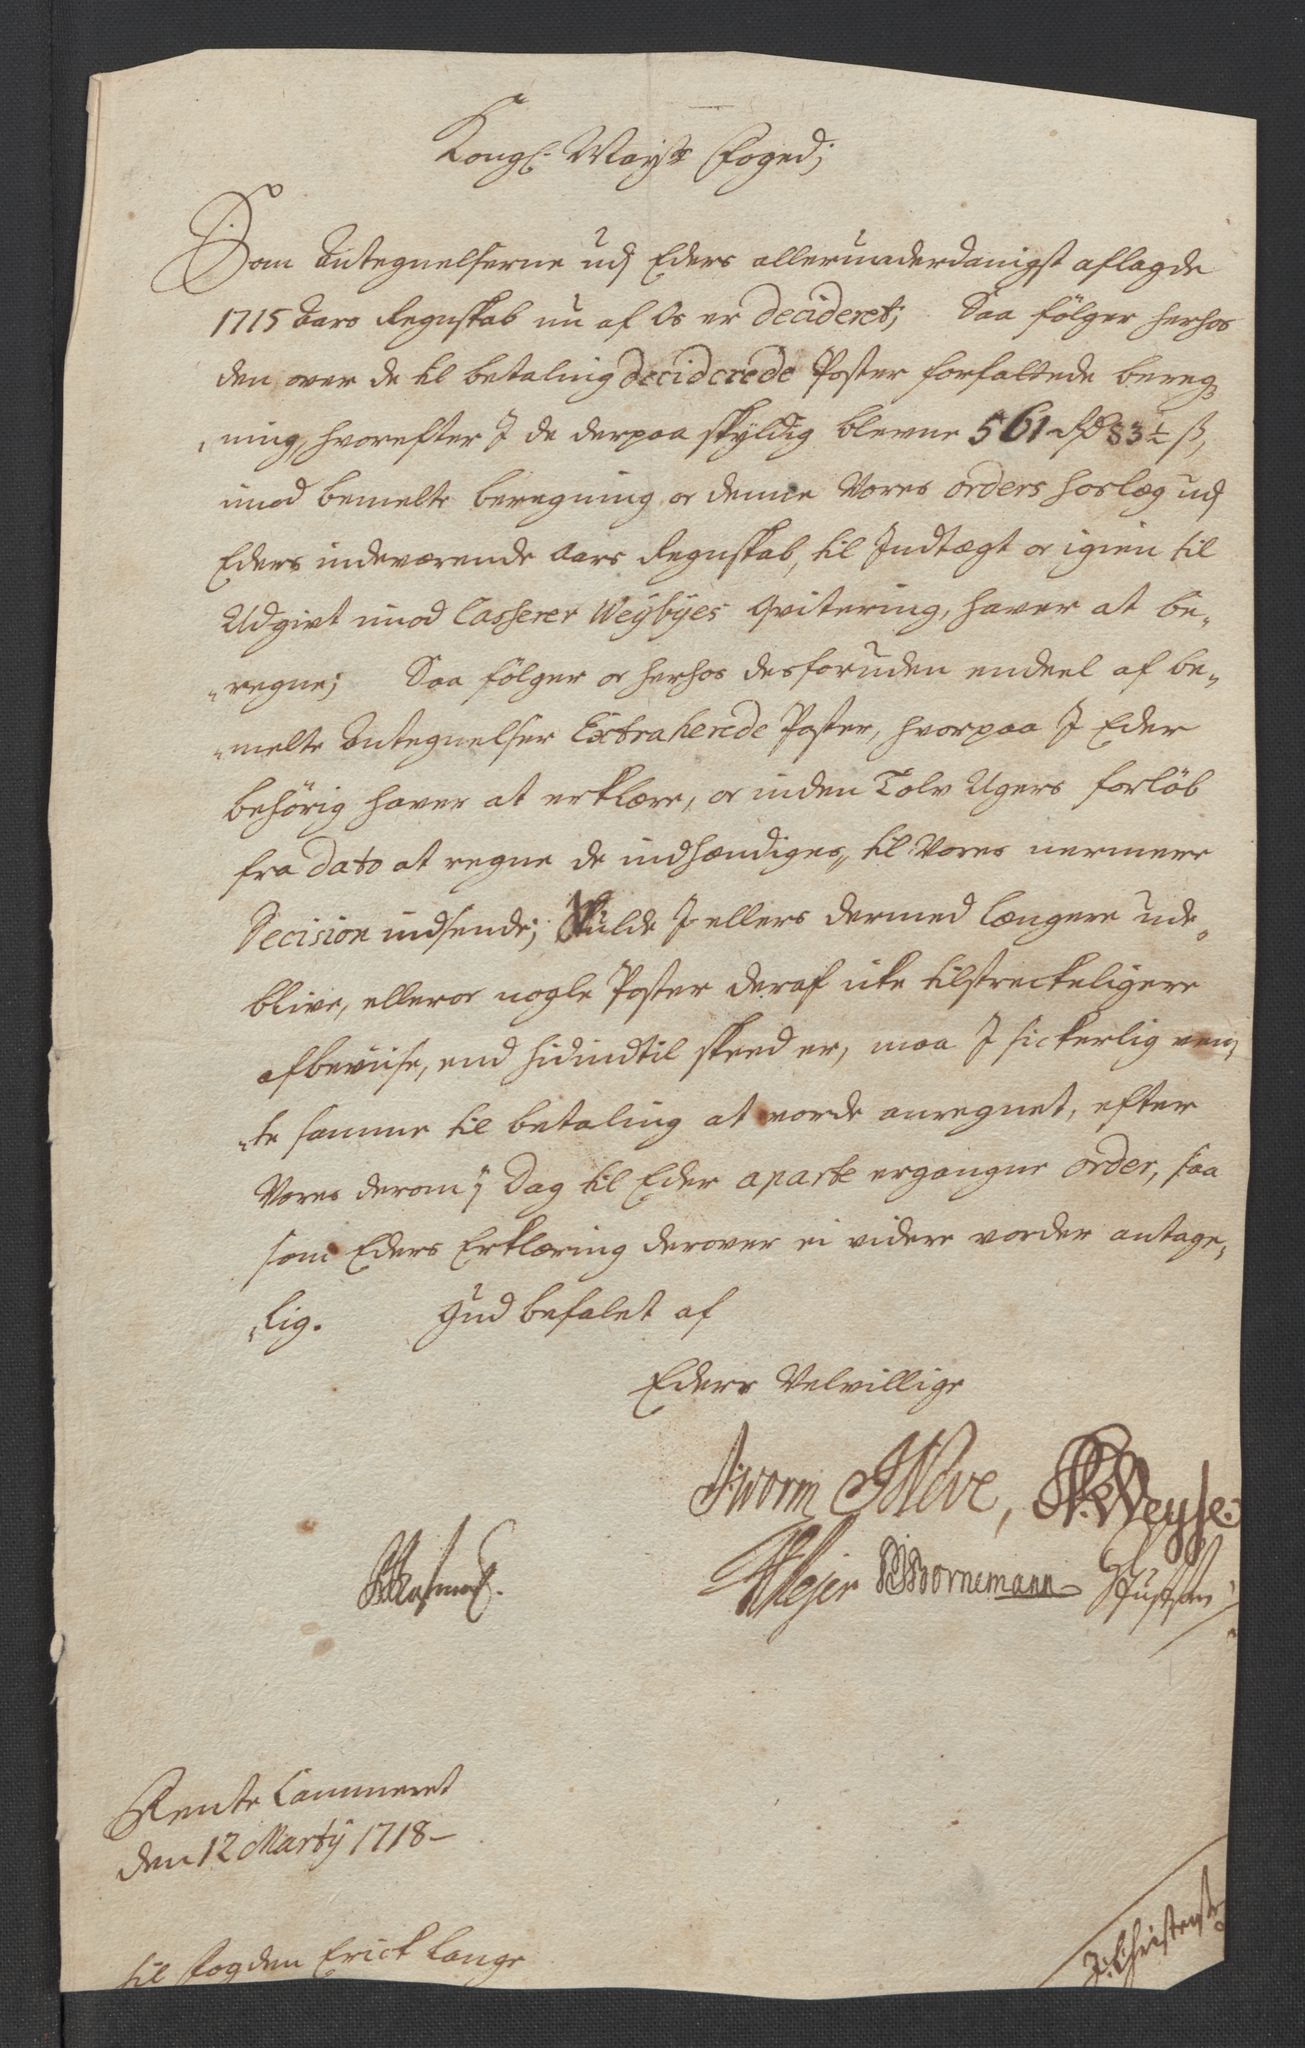 Kongl. Mayts Foged;
Som Antegnelserne udj Eders allerunderdanigst aflagde
1715 Aars Regnskab nu af Os er decideret; Saa fölger herhos
den over de til betaling deciderede Poster forfattede bereg-
ning, hvorefter I de derpaa skyldig blevne 561 rd 83½ ß,
imod bemelte beregning oc denne Vores orders horlæg udj
Eders indeværende Aars Regnskab, til Indtægt oc igien til
Udgivt imod Casserer Weybyes Qvitering, haver at be-
regne; Saa fölger oc herhos desforuden endeel af be-
melte Antegnelser Extraherede Poster, hvorpaa I Eder
behörig haver at erklære, oc inden Tolv Ugers forlöb
fra dato at regne de indhændiges, til Vores nermere
Decision indsende; Skulde I ellers dermed længere ude-
blive, eller oc nogle Poster deraf icke tilstreckeligere
afbeviise, end hidindtil skeed er, maa I sickerlig ven-
te samme til betaling at vorde anregnet, efter
Vores derom i Dag til Eder aparte ergangne order, saa
som Eders Erklæring derover ei videre vorder antage-
lig. Gud befalet af
Eders Velvillige
J Worm Neve, Weyse
Mejer Bornemann
Rente Cammeret
den 12 Martij 1718
til Fogden Erick Lange
J: Christens